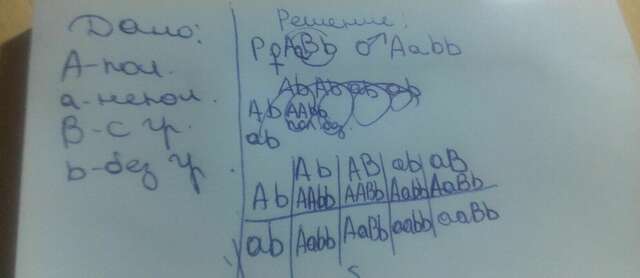 Дано:
А-пол.
а-непол.
В-с гр.
b-без гр.
Решение:
P ♀ AaBb ♂ Aabb
Ab Ab ab ab
Ab AAbb
ab
Ab AB ab aB
Ab AAbb AABb Aabb AaBb
ab Aabb AaBb aabb aaBb